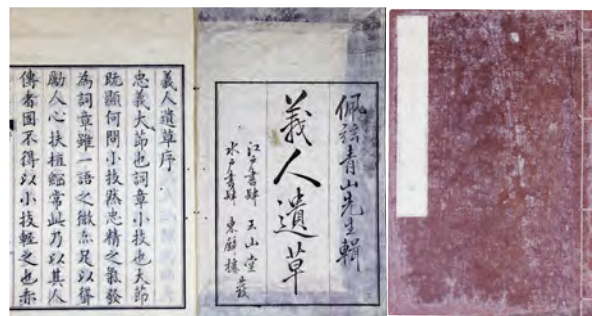 佩弦青山先生輯
義人遺草
江戸書肆 玉山堂
水戸書肆 東壁樓 發
義人遺草序
忠義大節也詞章小技也大節
既顯何問小技然忠精之氣發
為詞章雖一語之微亦足以
勵人心扶植綱常此乃以其人
傳者固不得以小技輕之也赤